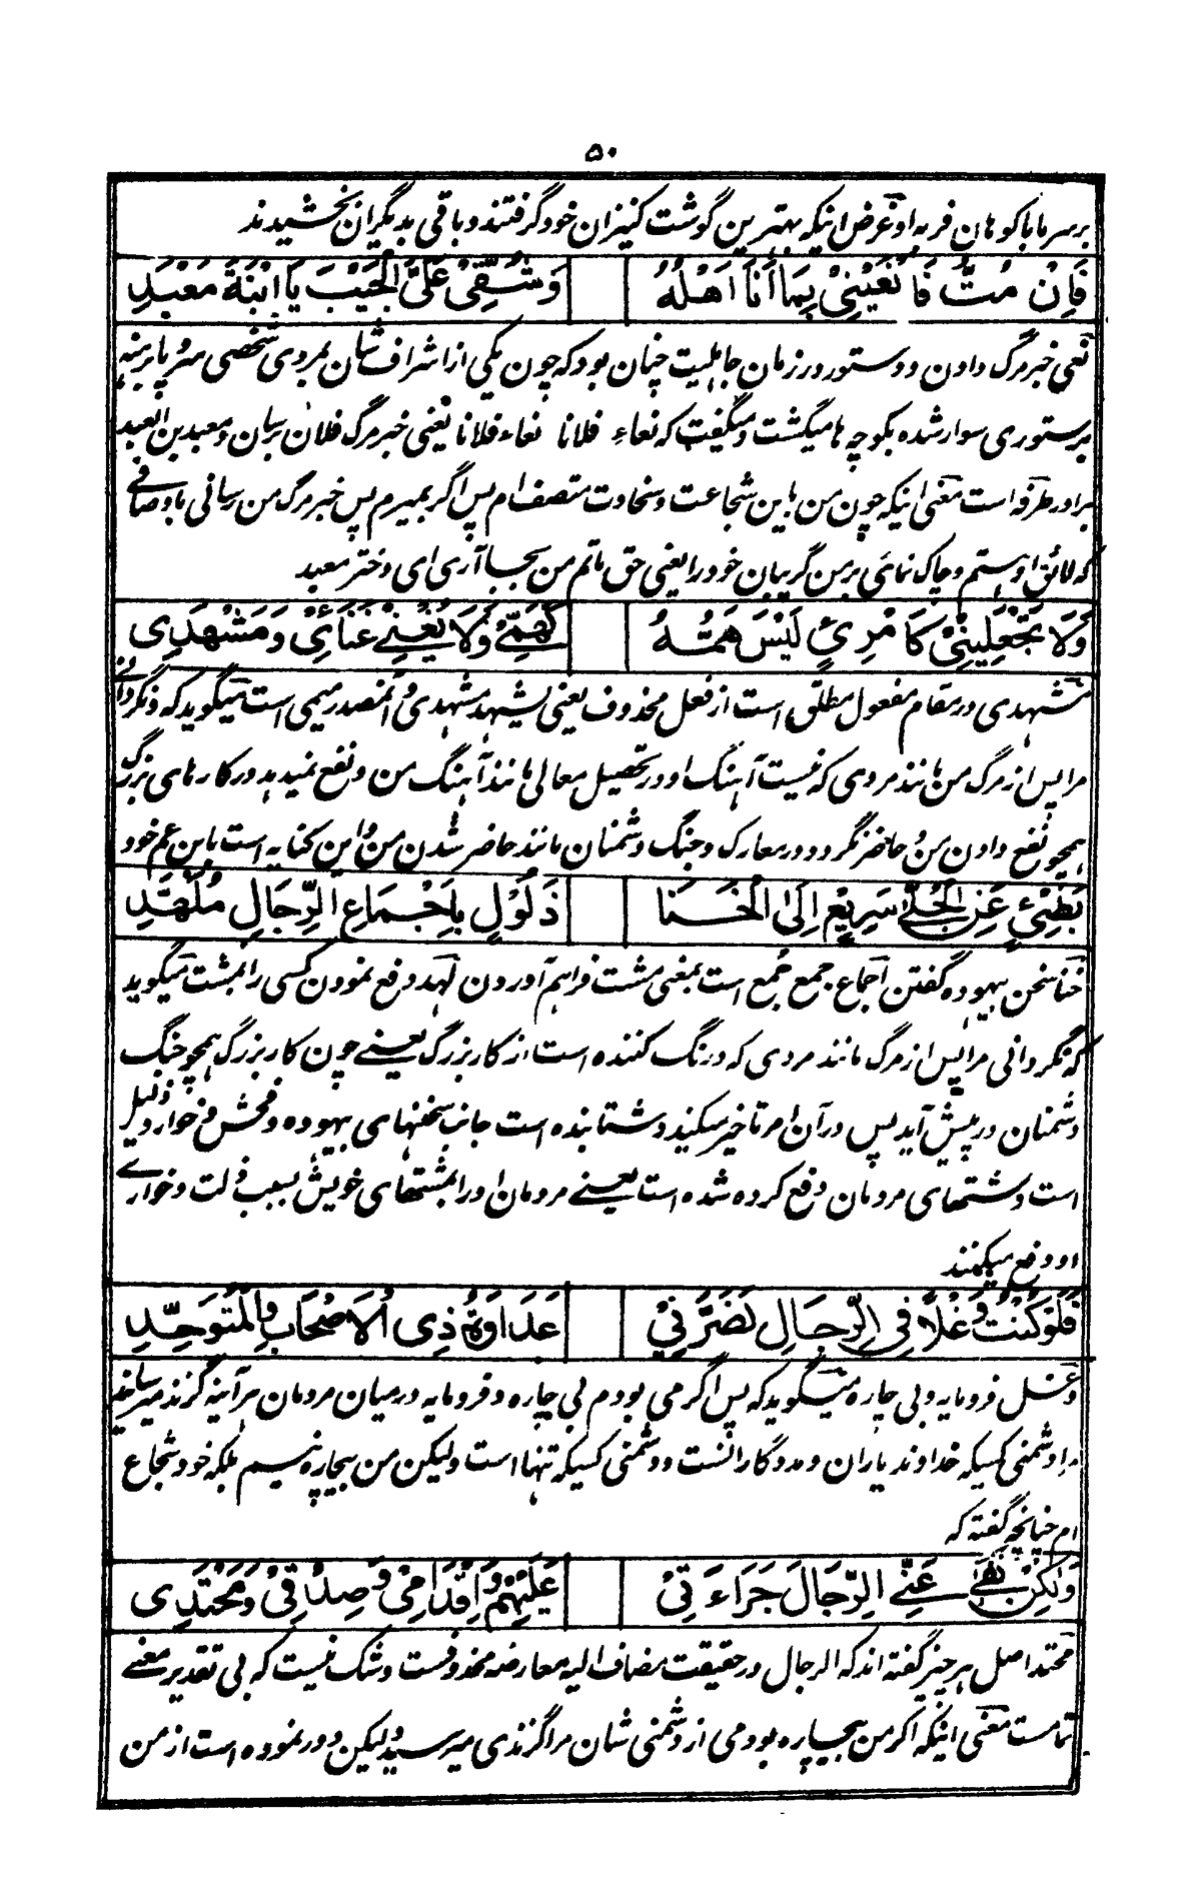 ۵۰
برسر ما با کوهان فربه او غرض اینکه بهترین گوشت کنیزان خود گرفتند و باقی بدیگران بخشیدند
فَاِنْ مُتُّ فَانْعَیْنِیْ بِمَا اَنَا اَهْلُهُ وَشُقِّیْ عَلَیَّ الْجَیْبَ یَا ابْنَةَ مَعْبَدِ
نعی خبر مرگ دادن و دستور در زمان جاهلیت چنان بود که چون یکی از اشراف شان بمردی شخصی سر و پا برهنه
برستوری سوار شده بکوچه ها میگشت و میگفت که نعاءِ فلانا نعاء فلانا یعنی خبر مرگ فلان برسان و معبد بن العبد
برادر طرفه است معنی اینکه چون من باین شجاعت و سخاوت متصف ام پس اگر بمیرم پس خبر مرگ من رسانی باوصافے
که لائق او هستم و چاک نمائی بر من گریبان خود را یعنی حق ماتم من بجا آری ای دختر معبد
وَلَا تَجْعَلِیْنِیْ کَامْرِئٍ لَیْسَ هَمُّهُ کَهَمِّیْ وَلَا یُغْنِیْ غَنَائِیْ وَمَشْهَدِی
مشهدی در مقام مفعول مطلق است از فعل محذوف یعنی یشهد مشهدی و المصدر میمی است میگوید که و نگردانے
مرا پس از مرگ من مانند مردی که نیست آهنگ او در تحصیل معالی مانند آهنگ من و نفع نمیدهد در کارهای بزرگ
همچو نفع دادن من و حاضر نگردد در معارک و جنگ دشمنان مانند حاضر شدن من و این کنایه است باین عم خود
بَطِیْئٍ عَنِ الْجُلّٰی سَرِیْعٍ اِلَی الْخَنَا ذَلُوْلٍ بِاَجْمَاعِ الرِّجَالِ مُلَهَّدِ
خنا سخن بیهوده گفتن اجماع جمع جُمع است بمعنی مشت فراهم آوردن لهد دفع نمودن کسی را بمشت میگوید
که نگردانی مرا پس از مرگ مانند مردی که درنگ کننده است از کار بزرگ یعنے چون کار بزرگ همچو جنگ
دشمنان درپیش آید پس در آن امر تاخیر میکند و شتابنده است جانب سخنهای بیهوده و فحش و خوار و ذلیل
است و بمشتهای مردمان دفع کرده شده است یعنے مردمان او را بمشتهای خویش بسبب ذلت و خوارے
او دفع میکنند
فَلَوْ کُنْتُ وَغْلًا فِی الرِّجَالِ لَضَرَّنِیْ عَدَاوَةُ ذِی الْاَصْحَابِ وَالْمُتَوَحِّدِ
وغل فرومایه و بی چاره میگوید که پس اگر می بودم بی چاره و فرومایه درمیان مردمان هرآینه گزند میرسانید
مرا دشمنی کسیکه خداوند یاران و مددگارانست و دشمنی کسیکه تنها است ولیکن من بیچاره نیسم بلکه خود شجاع
ام چنانچه گفته که
وَلٰکِنْ نَفٰی عَنِّی الرِّجَالَ جَرَاءَتِیْ عَلَیْهِمْ وَاِقْدَامِیْ وَصِدْقِیْ وَمَحْتِدِی
محتد اصل هر چیز گفته اند که الرجال در حقیقت مضاف الیه معارضه محذوفست و شک نیست که بی تقدیر معنے
تمامست معنی اینکه اگر من بیچاره بودمی از دشمنی شان مرا گزندی میرسید ولیکن دور نموده است از من